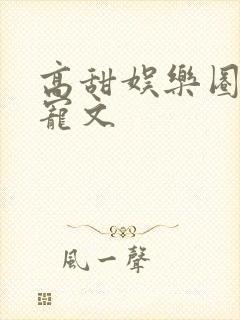 高甜娛樂圈
寵文
風一聲